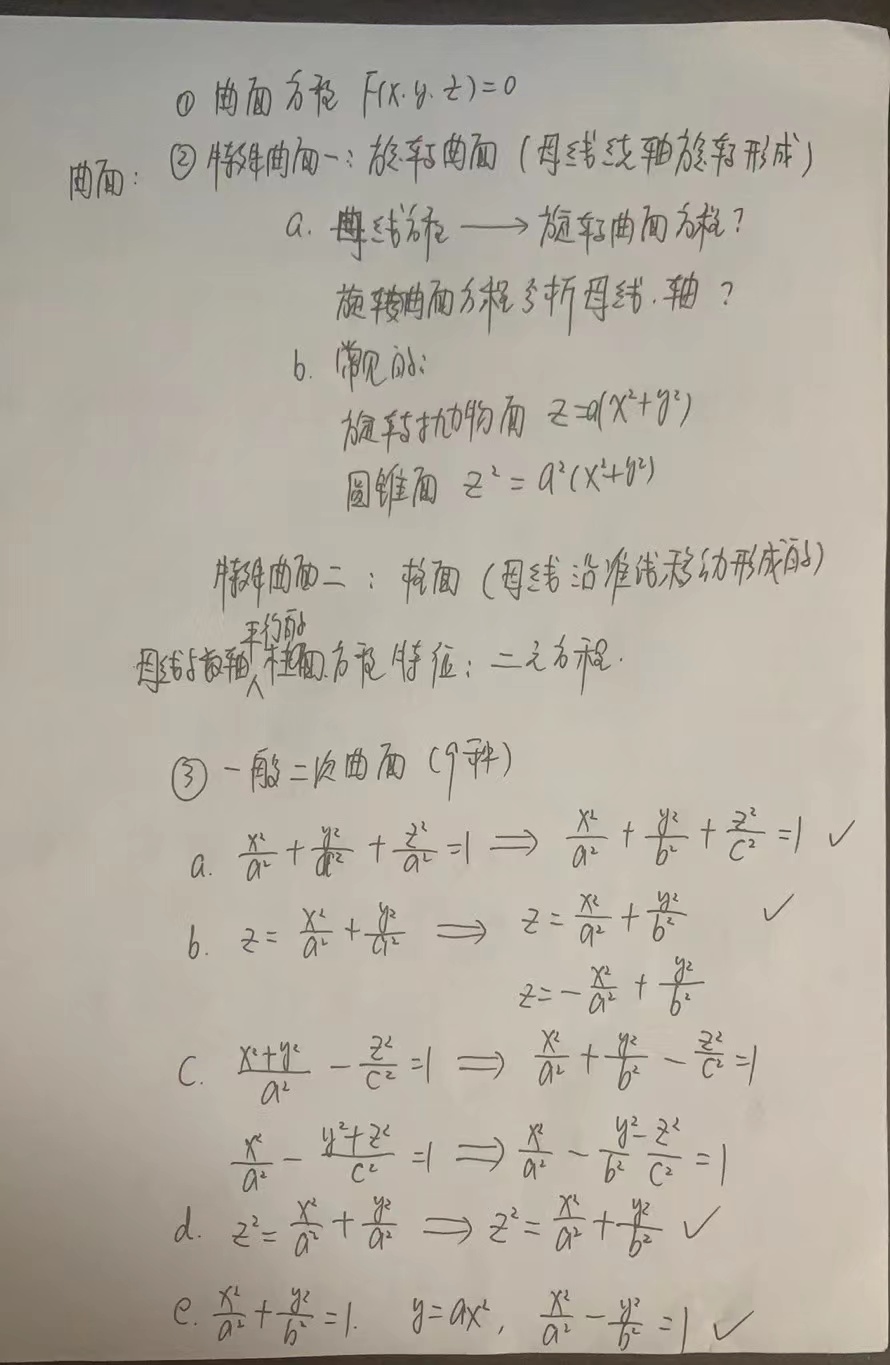 ① 曲面方程 F(x.y.z)=0
曲面: ② 特殊曲面一: 旋转曲面 (母线绕轴旋转形成)
a. 母线方程 ⟶ 旋转曲面方程?
旋转曲面方程分析母线.轴?
b. 常见的:
旋转抛物面 z=a(x²+y²)
圆锥面 z²=a²(x²+y²)
特殊曲面二: 柱面 (母线沿准线移动形成的)
母线与数轴平行的柱面方程特征: 二元方程.
③ 一般二次曲面 (9种)
a. x²/a² + y²/a² + z²/a² =1 ⟹ x²/a² + y²/b² + z²/c² =1 ✓
b. z= x²/a² + y²/a² ⟹ z= x²/a² + y²/b² ✓
z=- x²/a² + y²/b²
c. (x²+y²)/a² - z²/c² =1 ⟹ x²/a² + y²/b² - z²/c² =1
x²/a² - (y²+z²)/c² =1 ⟹ x²/a² - y²/b² - z²/c² =1
d. z²= x²/a² + y²/a² ⟹ z²= x²/a² + y²/b² ✓
e. x²/a² + y²/b² =1. y=ax², x²/a² - y²/b² =1 ✓